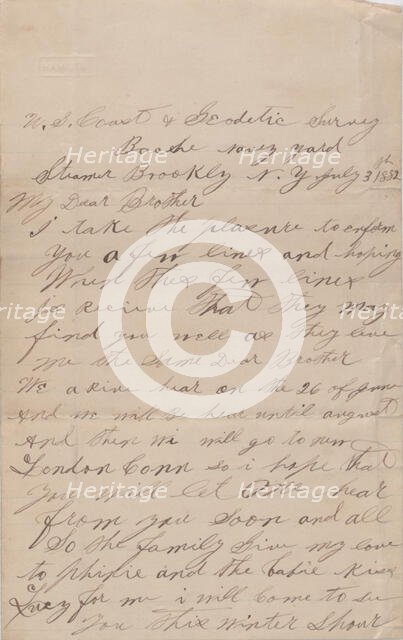 U. S. Coast & Geodetic Survey
Bache navy yard
Steamer Brookly N. Y July 3th 1882
My Dear Brother
I take the plasure to enform
You a few lines and hoping
When thes few lines
be reciever That They may
find you well as They leve
me the same Dear Brother
We arive hear on the 26 of June
And we will be hear until august
And then wi will go to new
London Conn so i hope that
You will let me hear
from you soon and all
So the family Give my love
to and the babie Kiss
Lucy for me i will come to see
You This winter Shour
Heritage Heritage
Heritage Heritage
Heritage Heritage
Heritage Heritage
C